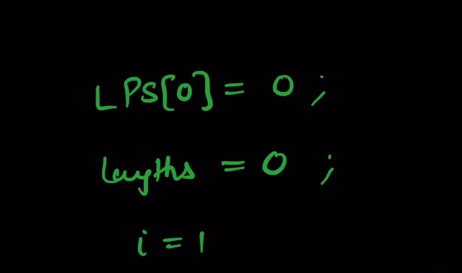 LPS[0] = 0 ;
lengths = 0 ;
i = 1